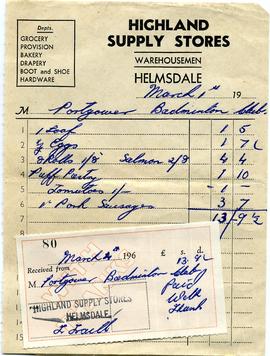 Depts.
GROCERY
PROVISION
BAKERY
DRAPERY
BOOT and SHOE
HARDWARE
HIGHLAND
SUPPLY STORES
WAREHOUSEMEN
HELMSDALE
March 1st 19
M Portgower Badminton Club.
1 1 Loaf 1 5
2 Eggs 1 7
3 Rolls 1/8 Salmon 2/8 4 4
4 Puff Pastry 1 10
5 Tomatoes 1/-
6 Pork Sausages 3 7
7 13-9½
8
80
March 196 £ s. d.
Received from 13.9½
M. Portgower Badminton Club
Paid
With
Thanks
HIGHLAND SUPPLY STORES
HELMSDALE
15